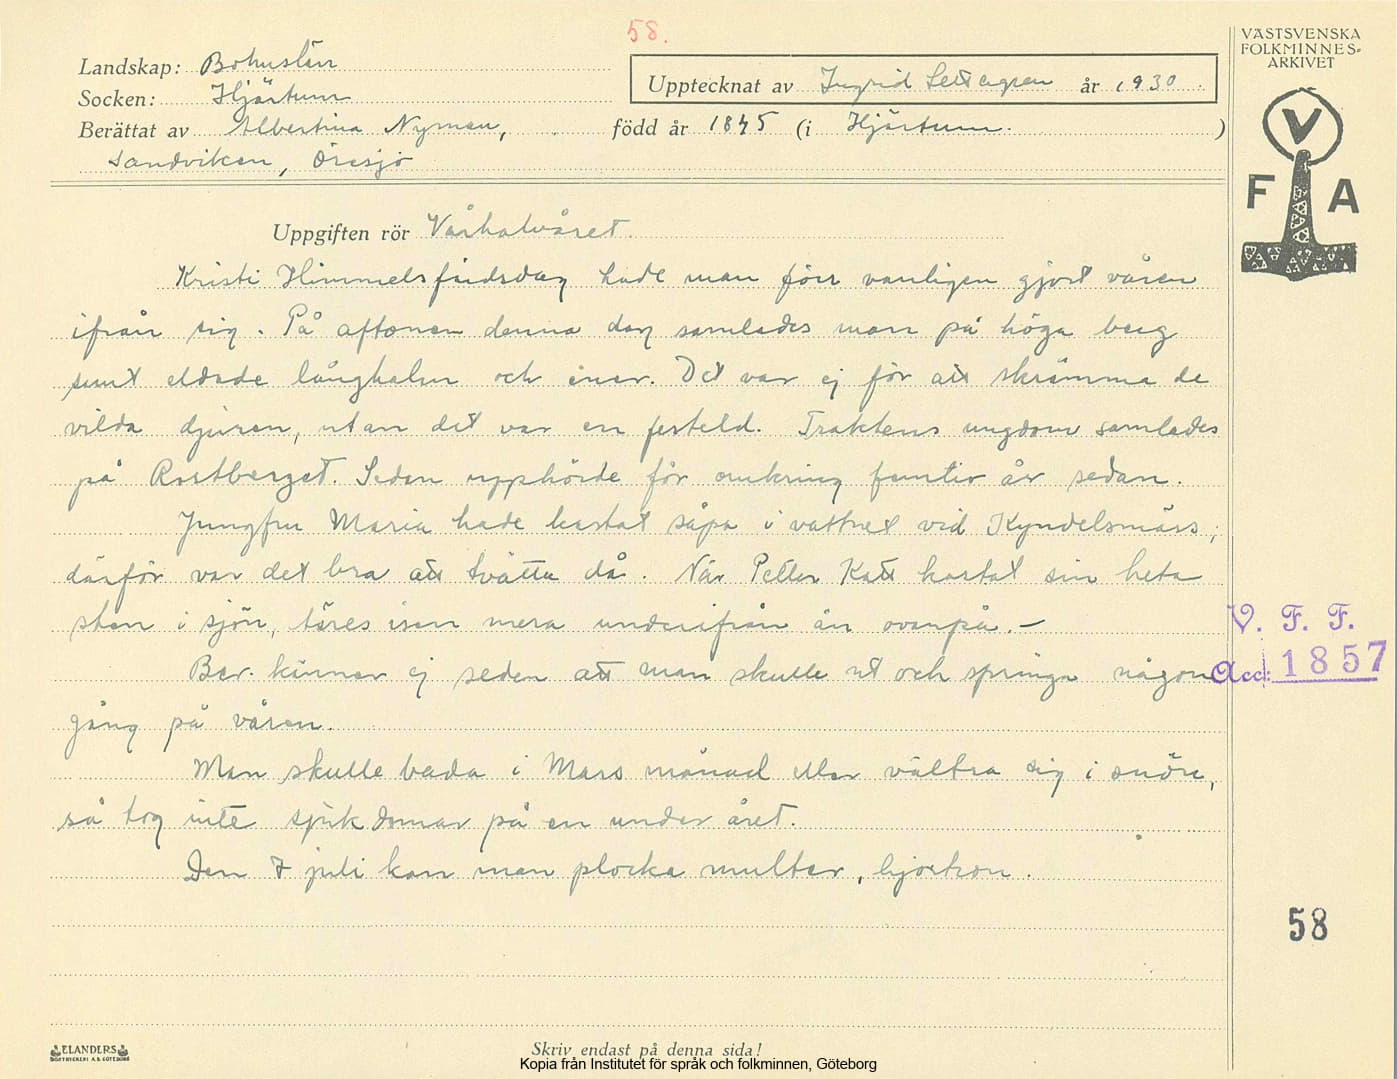 58.
VÄSTSVENSKA
FOLKMINNES-
ARKIVET
Landskap: Bohuslän
Upptecknat av Ingrid år 1930
Socken: Hjärtum
Berättat av Albertina Nyman, född år 1845 (i Hjärtum. )
Sandviken, Öresjö
V
F A
Uppgiften rör Vårhalvåret.
Kristi Himmelsfärdsdag hade man förr vanligen gjort våren
ifrån sig. På aftonen denna dag samlades man på höga berg
samt eldade långhalm och enar. Det var ej för att skrämma de
vilda djuren, utan det var en festeld. Traktens ungdom samlades
på Rostberget. Seden upphörde för omkring femtio år sedan.
Jungfru Maria hade kastat såpa i vattnet vid Kyndelsmäss,
därför var det bra att tvätta då. När Petter Katt kastat sin heta
sten i sjön, täres isen mera underifrån än ovanpå. —
V. F. F.
Ber. känner ej seden att man skulle ut och springa någon
Acc: 1857
gång på våren.
Man skulle bada i Mars månad eller vältra sig i snön,
så tog inte sjukdomar på en under året.
Den 7 juli kan man plocka multer, hjortron.
58
ELANDERS
BOKTRYCKERI A.B. GÖTEBORG
Skriv endast på denna sida!
Kopia från Institutet för språk och folkminnen, Göteborg